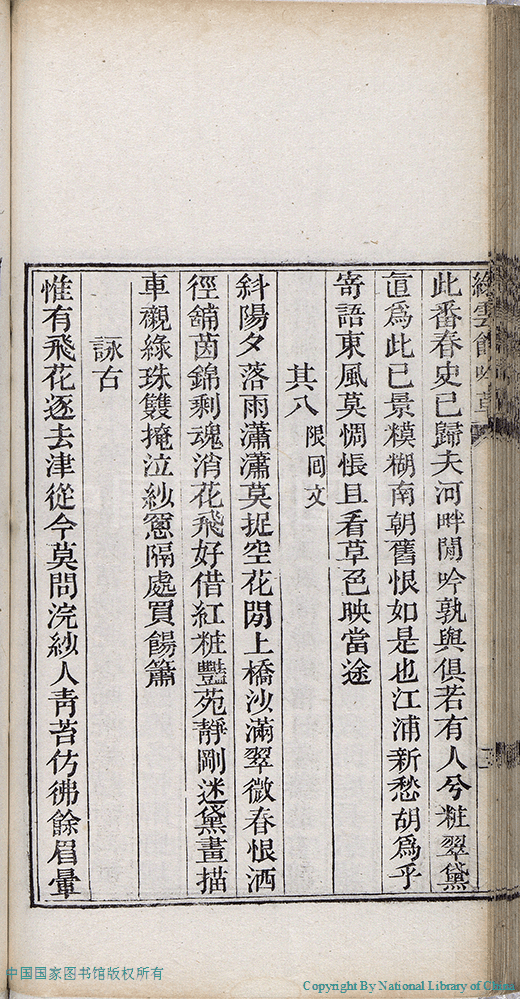 雲館吟草
此番春史已歸夫河畔閒吟孰與俱若有人兮粧翠黛
直爲此已景糢糊南朝舊恨如是也江浦新愁胡爲乎
寄語東風莫惆悵且看草色映當途
其八 限囘文
斜陽夕落雨瀟瀟莫捉空花閑上橋沙滿翠微春恨洒
徑舖茵錦剩魂消花飛好借紅粧豔苑靜剛迷黛畫描
車襯綠珠雙掩泣紗窻隔處買餳簫
詠古
惟有飛花逐去津從今莫問浣紗人青苔仿彿餘眉暈
中国国家图书馆版权所有
Copyright By National Library of China